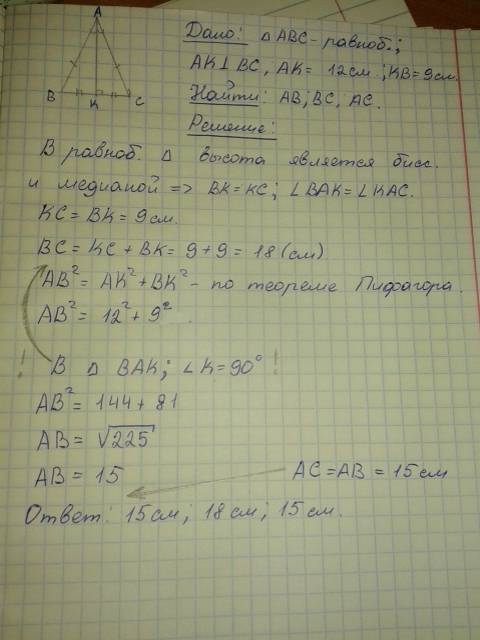 A
B
K
C
Дано: △ ABC - равноб.;
AK⊥BC, AK = 12 см; KB = 9 см
Найти: AB; BC; AC.
Решение:
В равноб. △ высота является бисс.
и медианой => BK = KC; ∠BAK = ∠KAC.
KC = BK = 9 см.
BC = KC + BK = 9 + 9 = 18 (см)
AB² = AK² + BK² - по теореме Пифагора.
AB² = 12² + 9²
! В △ BAK; ∠K = 90° !
AB² = 144 + 81
AB = √225
AB = 15
AC = AB = 15 см
Ответ: 15 см; 18 см; 15 см.